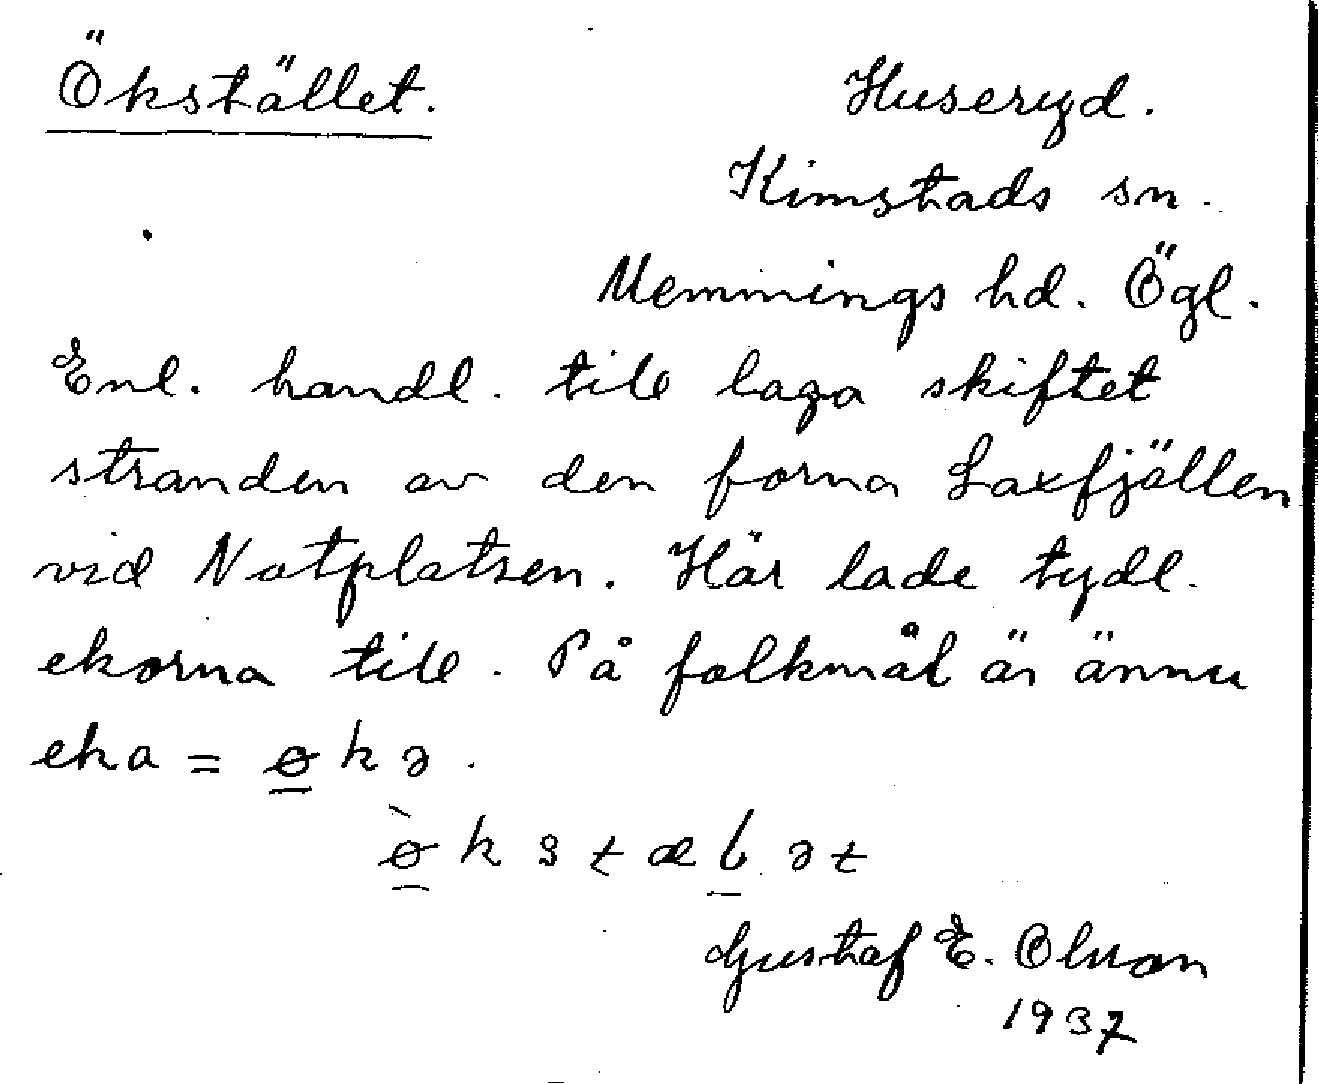 Ökstället. Huseryd.
Kimstads sn.
Memmings hd. Ögl.
Enl. handl. till laga skiftet
stranden av den forna Laxfjällen
vid Notplatsen. Här lade tydl.
ekorna till. På folkmål är ännu
eka = ø̲kə.
ø̲̀kstæl̲ət
Gustaf E. Olson
1937